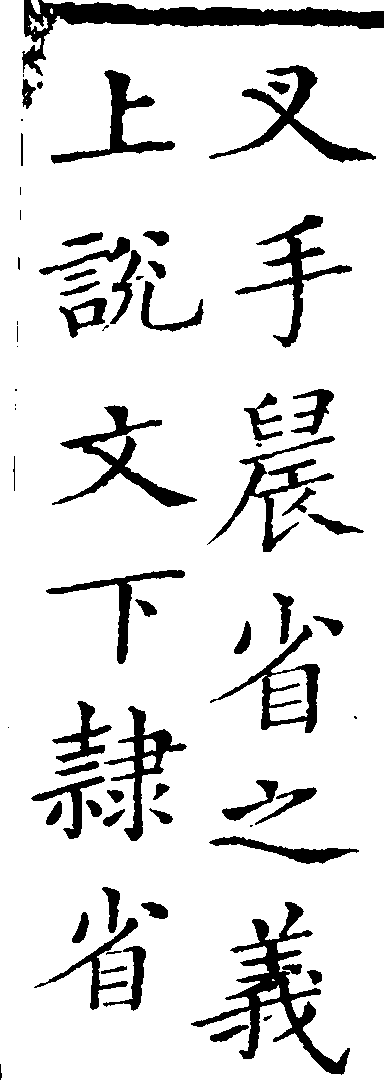 叉手䢅省之義
上說文下隸省